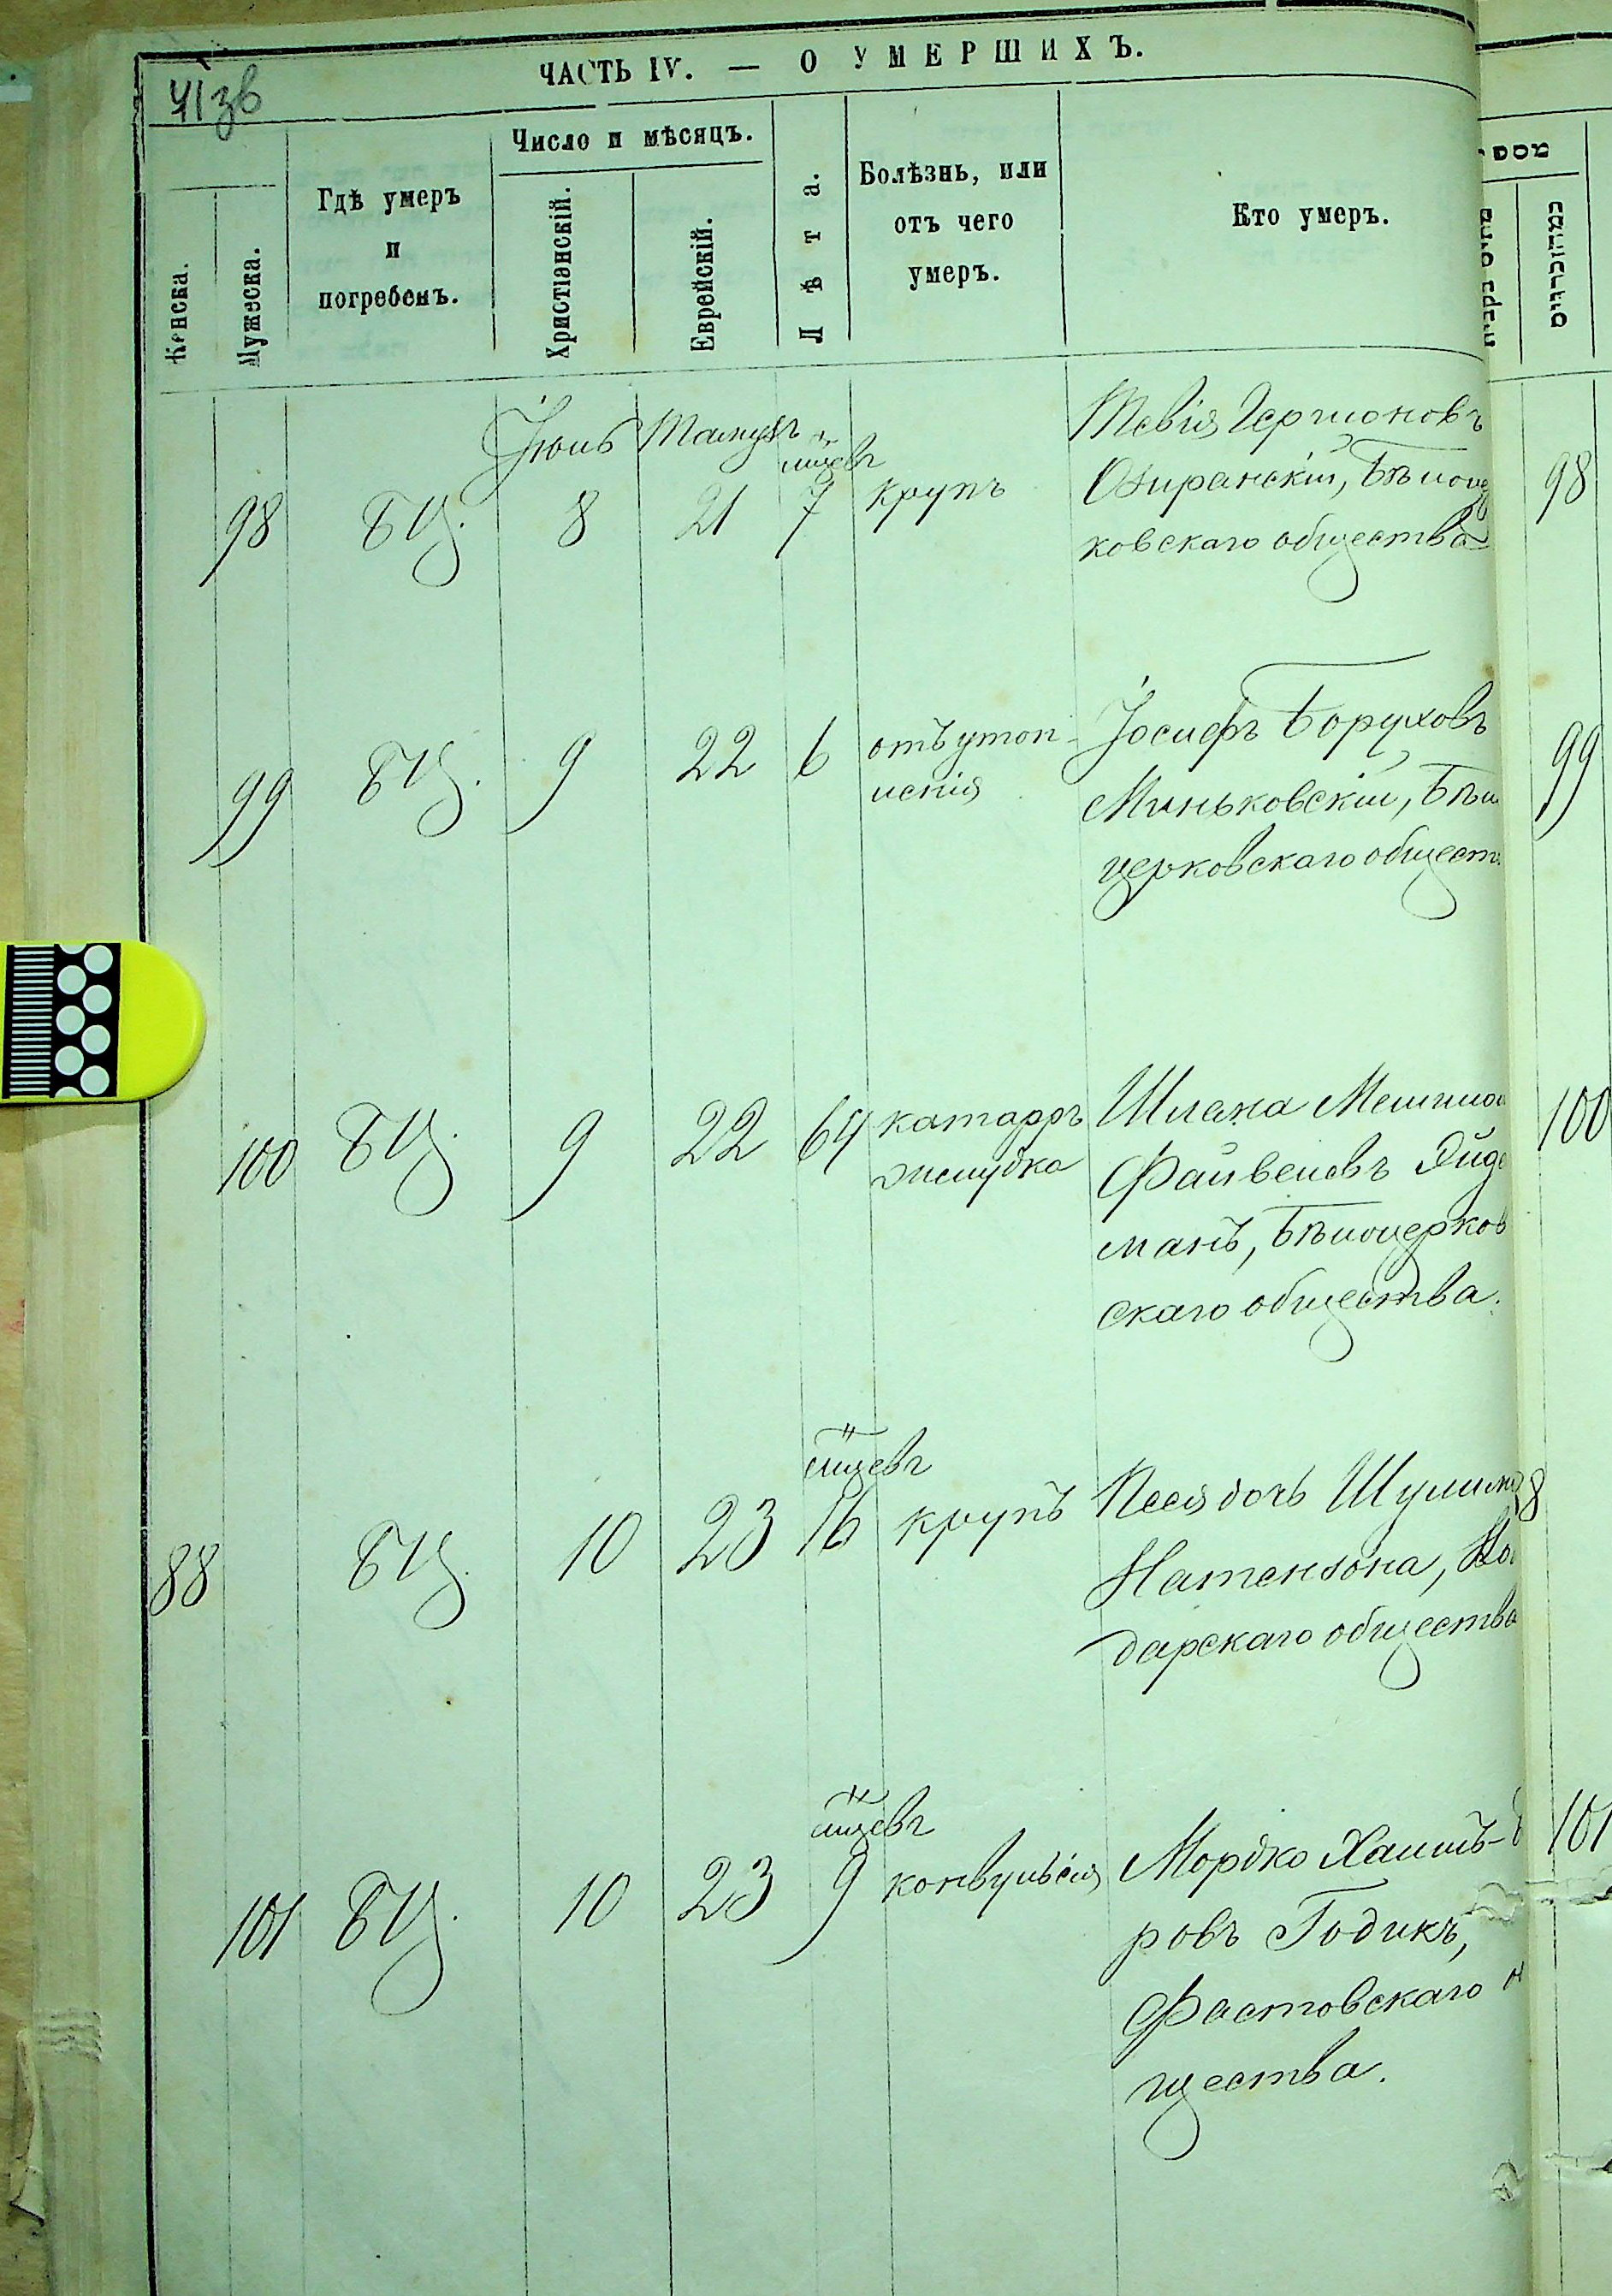 41 зв
ЧАСТЬ IV. — О УМЕРШИХЪ.
Женска.
Мужеска.
Гдѣ умеръ
и
погребенъ.
Число и мѣсяцъ.
Христіанскій.
Еврейскій.
Лѣта.
Болѣзнь, или
отъ чего
умеръ.
Кто умеръ.
Іюнь Тамузъ
98 БЦ. 8 21 7 крупъ
мцевъ
Тевія Гершоновъ
Озиранскій, Бѣлоцер
ковскаго общества
98
99 БЦ. 9 22 6 отъ утоп-
ленія
Іосифъ Боруховъ
Миньковскій, Бѣло
церковскаго общест
99
100 БЦ. 9 22 64 катарръ
желудка
Шлема
Файвелевъ
манъ, Бѣлоцерков
скаго общества.
100
88 БЦ. 10 23 16 крупъ
мцевъ
Песя дочь Шулима
Натензона,
дарскаго общества
8
101 БЦ. 10 23 9 конвульсія
мцевъ
Мордко Хаимъ-
ровъ Годикъ,
Фастовскаго
щества.
101